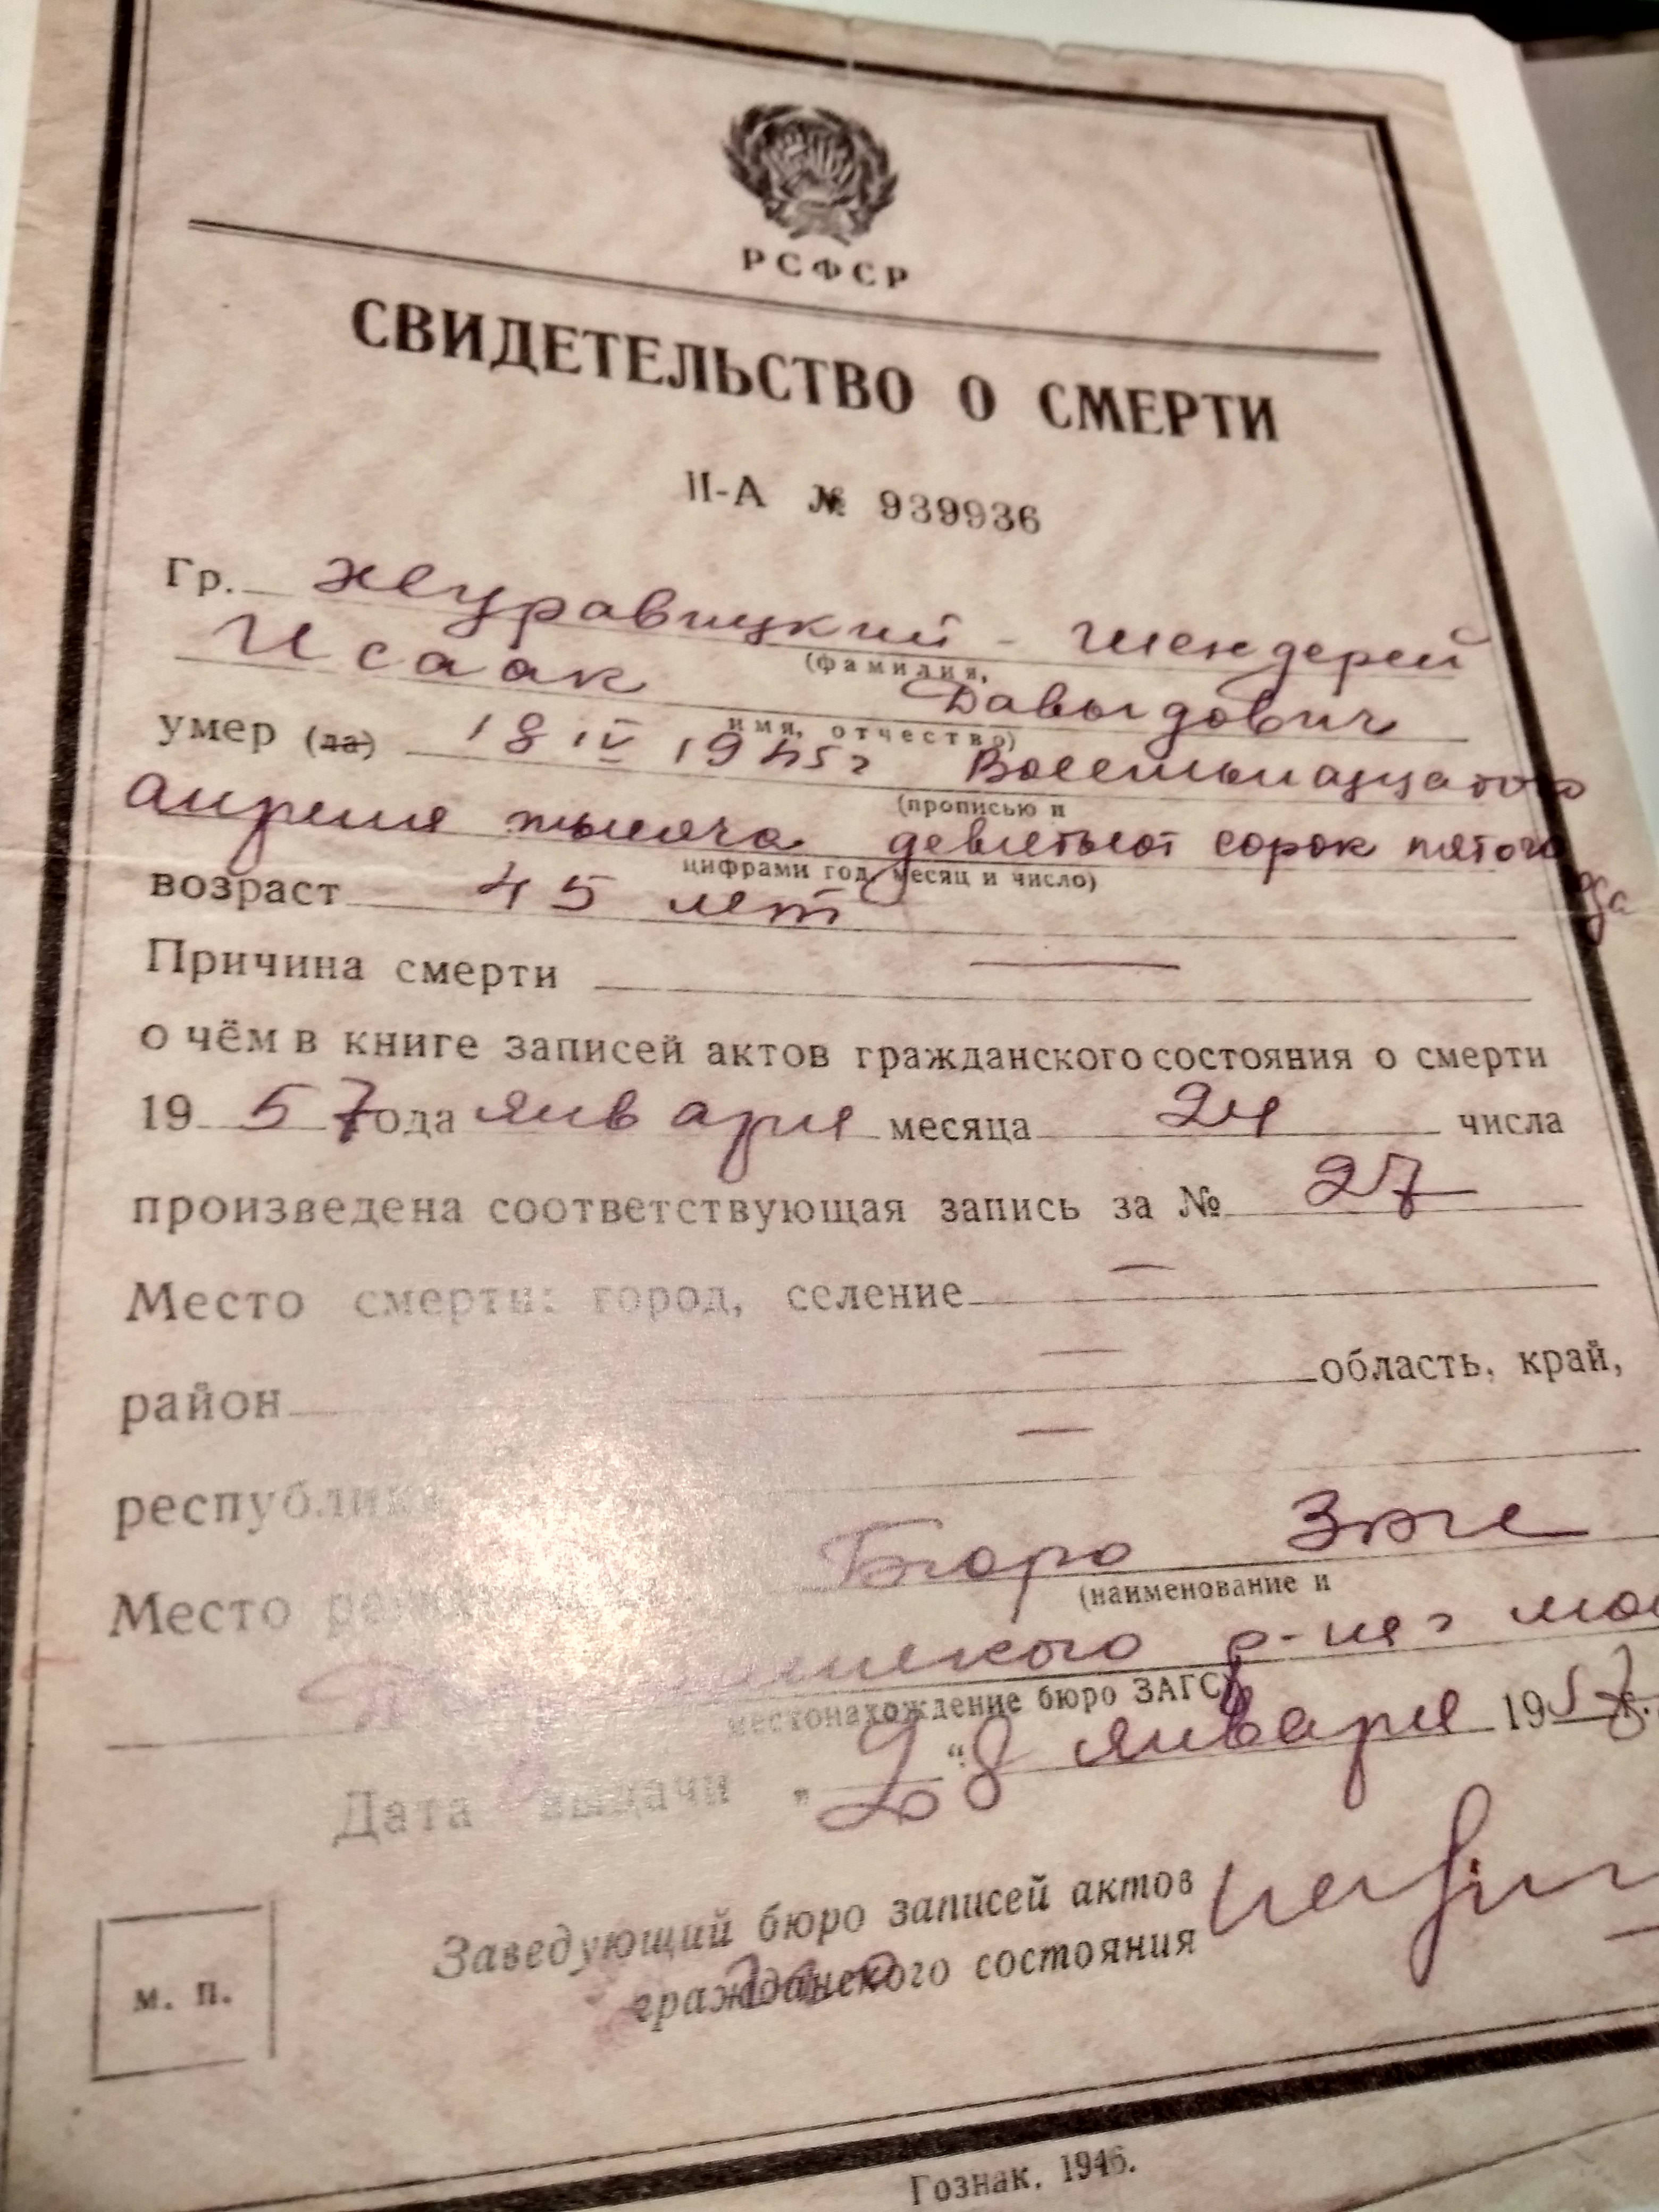 РСФСР
СВИДЕТЕЛЬСТВО О СМЕРТИ
II-А № 939936
Гр. Журавицкий - Шендерей
(фамилия,
Исаак Давыдович
имя, отчество)
умер (ла) 18 IV 1945 г Восемнадцатого
(прописью и
апреля тысяча девятьсот сорок пятого
цифрами год, месяц и число)
года
возраст 45 лет
Причина смерти —
о чём в книге записей актов гражданского состояния о смерти
19 57 года января месяца 24 числа
произведена соответствующая запись за № 27
Место смерти: город, селение —
район — область, край,
республика —
Место Бюро Загс
(наименование и
р-на г Мос
местонахождение бюро ЗАГС)
Дата выдачи „28“ января 1957 г.
Заведующий бюро записей актов
гражданского состояния
м. п.
Гознак. 1946.